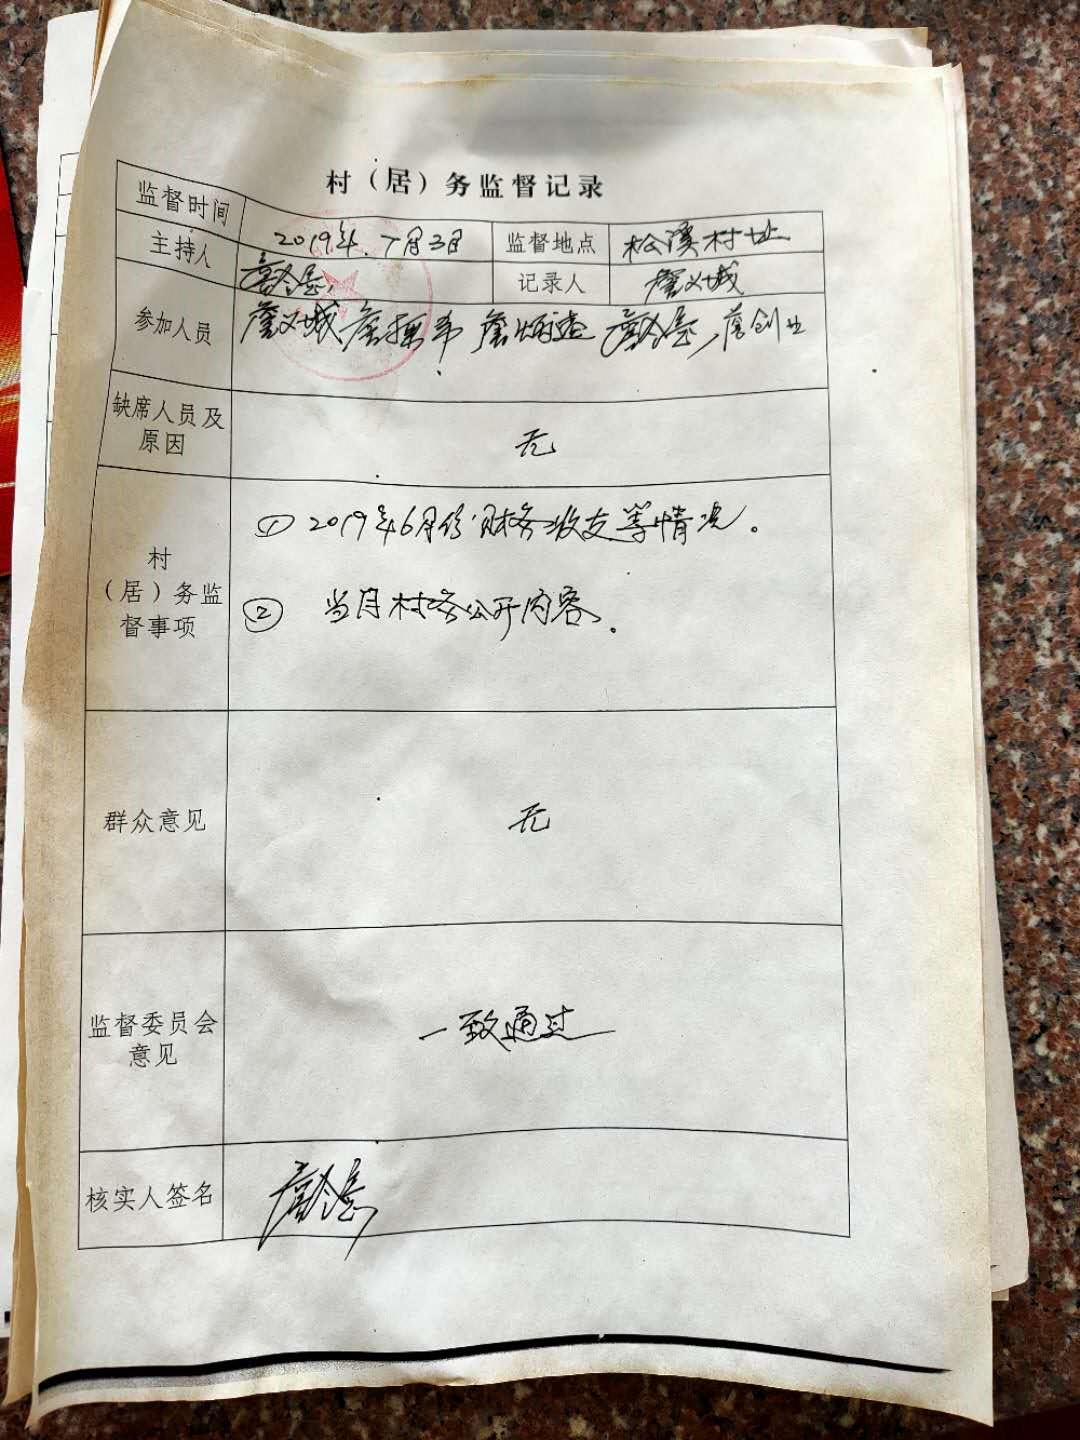 村（居）务监督记录
监督时间 2019年.7月3日 监督地点 松溪村址
主持人 记录人 詹义城
参加人员 詹义城 詹创业
缺席人员及
原因
无
① 2019年6月份财务收支等情况。
村
（居）务监
督事项
② 当月村务公开内容.
群众意见 无
监督委员会
意见
一致通过
核实人签名